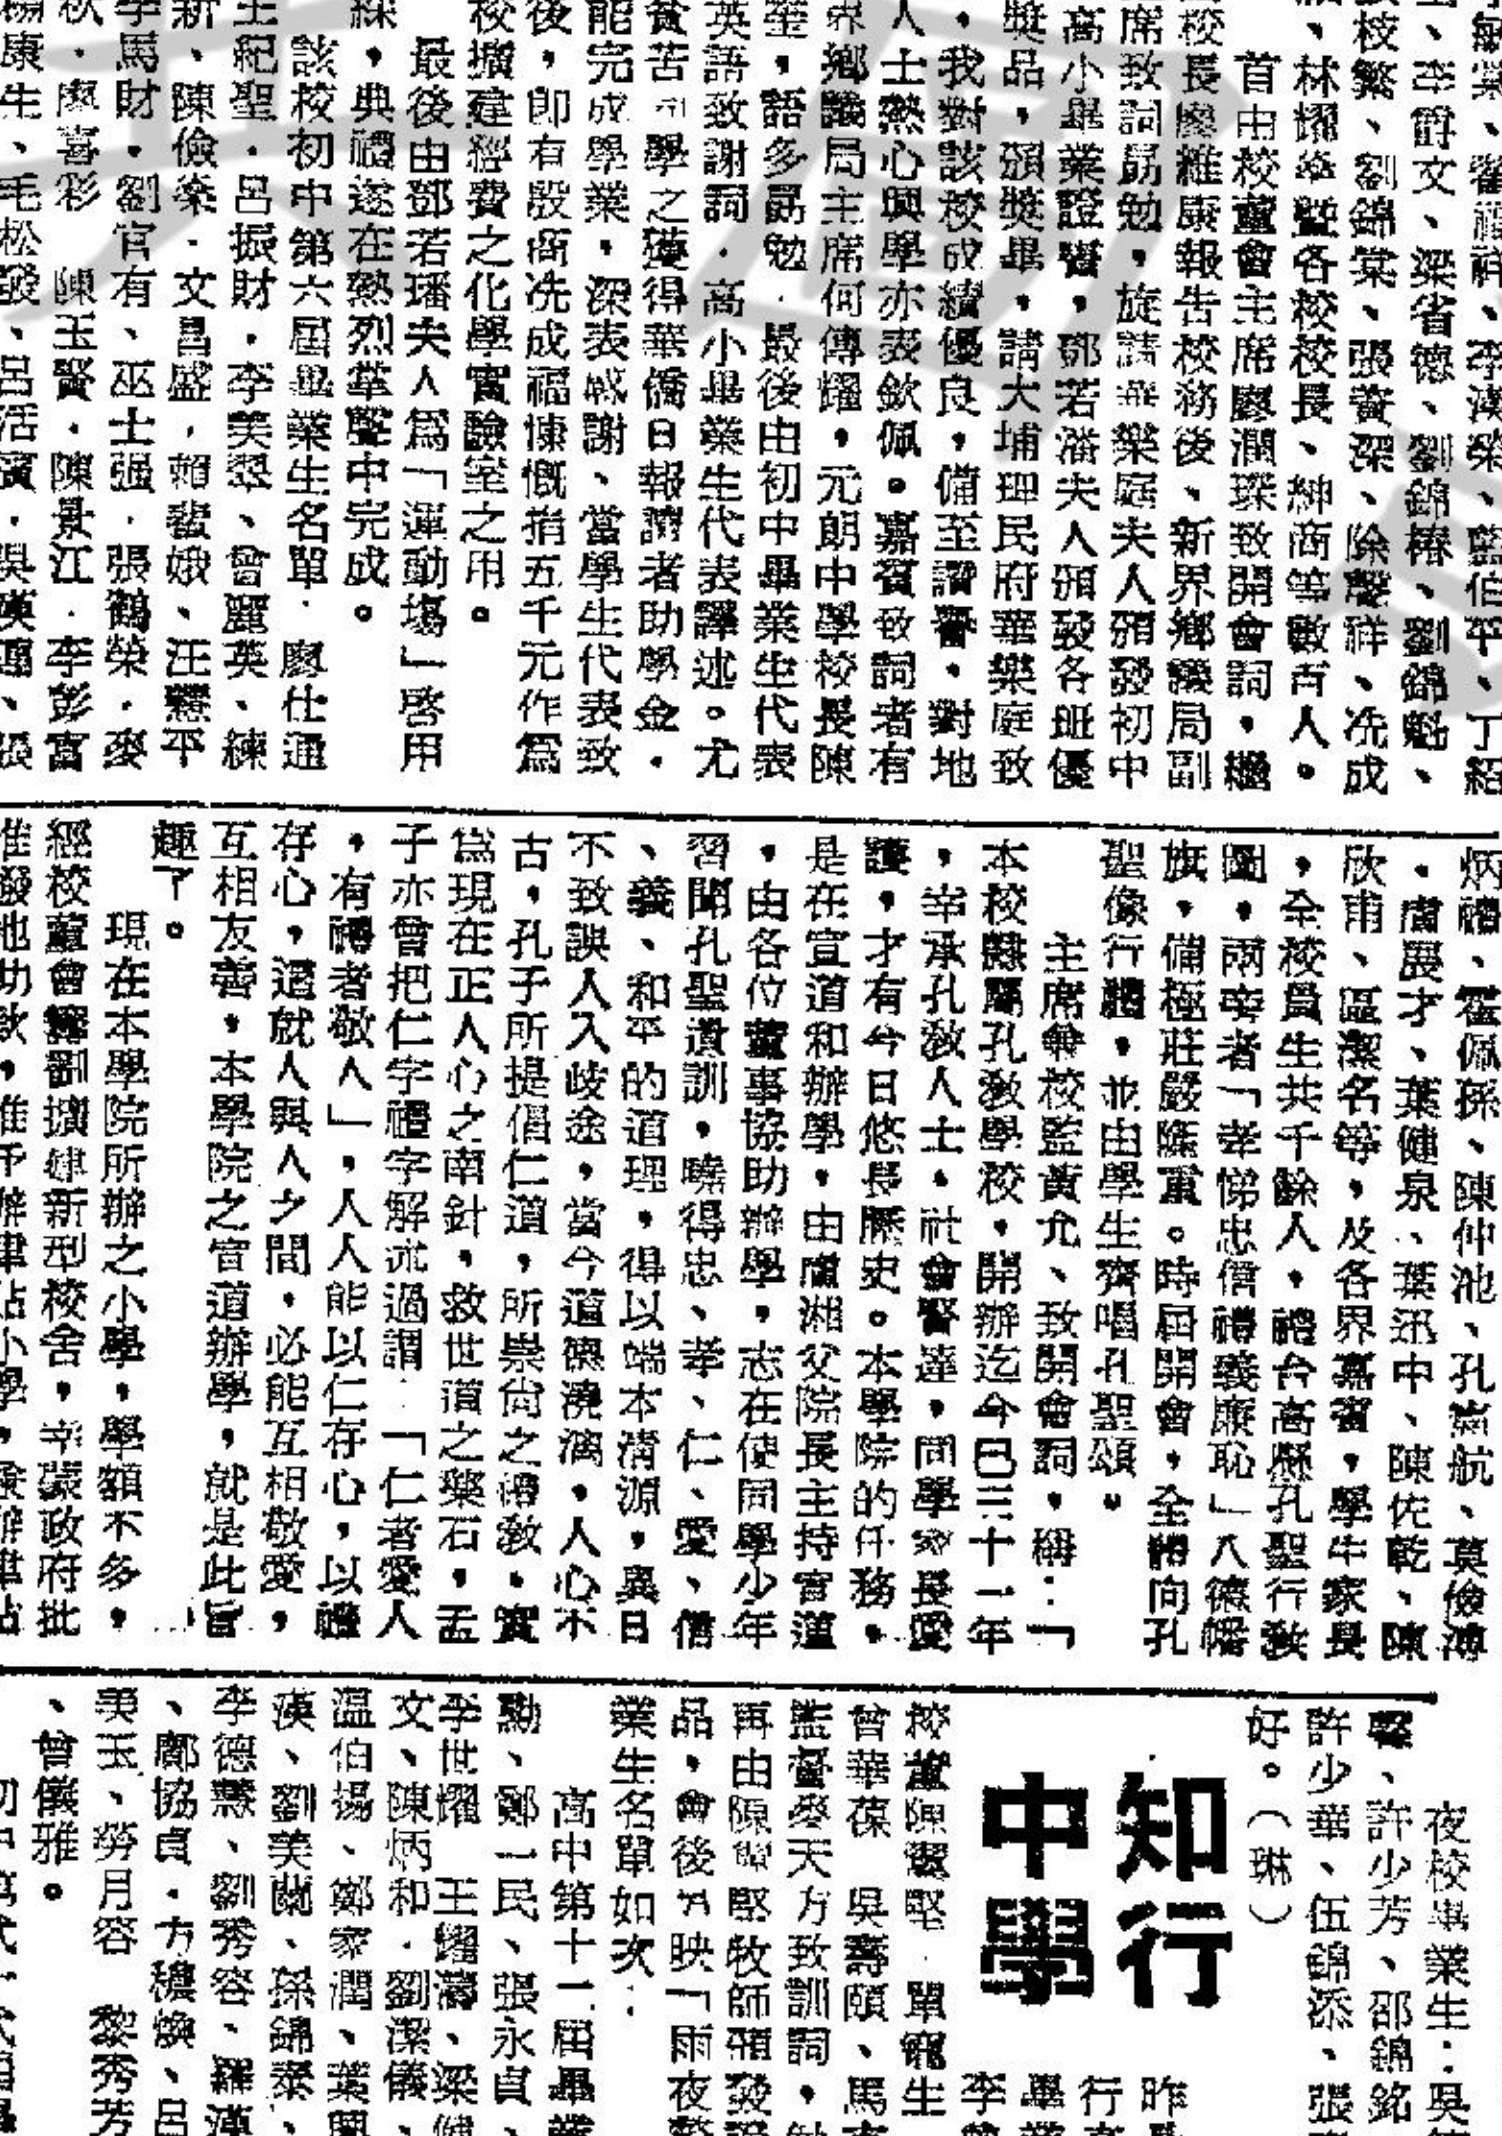 敏棠、翟福祥、李漢榮、藍伯平、丁紹
、李爵文、梁省德、劉錦椿、劉錦魁、
枝繁、劉錦棠、張資深、徐慶祥、冼成
、林耀華暨各校校長、紳商等數百人。
首由校董會主席廖潤琛致開會詞，繼
校長廖維康報告校務後、新界鄉議局副
席致詞勗勉，旋請華樂庭夫人頒發初中
高小畢業證書，鄧若璠夫人頒發各班優
獎品，頒獎畢，請大埔理民府華樂庭致
，我對該校成績優良，備至讚譽，對地
人士熱心興學亦表欽佩。嘉賓致詞者有
界鄉議局主席何傳耀，元朗中學校長陳
，語多勗勉．最後由初中畢業生代表
英語致謝詞．高小畢業生代表譯述。尤
貧苦同學之獲得華僑日報讀者助學金．
能完成學業，深表感謝、當學生代表致
後，即有殷商冼成福慷慨捐五千元作為
校擴建經費之化學實驗室之用。
最後由鄧若璠夫人為「運動場」啓用
綵，典禮遂在熱烈掌聲中完成。
該校初中第六屆畢業生名單．廖仕通
王紀聖．呂振財．李美翠、曾麗英、練
新、陳儉榮．文昌盛．賴蜚娥、汪慧平
李馬財．劉官有、巫士强．張鶴榮．麥
秋．廖喜彩　陳玉賢．陳景江．李彭富
楊康生、毛松發、呂活濱．吳漢
炳禮、霍佩孫、陳仲池、孔憲航、莫儉溥
．盧展才、葉健泉、葉汎中、陳佐乾、陳
欣甫、區潔名等，及各界嘉賓，學生家長
，全校員生共千餘人，禮台高懸孔聖行教
圖，兩旁者「孝悌忠信禮義廉恥」八德幡
旗，備極莊嚴隆重。時屆開會，全體向孔
聖像行禮，並由學生齊唱孔聖頌。
主席兼校監黃允、致開會詞，稱：「
本校隸屬孔教學校，開辦迄今已三十一年
，幸承孔教人士．社會賢達，同學家長愛
護，才有今日悠長歷史。本學院的任務，
是在宣道和辦學，由盧湘父院長主持宣道
，由各位董事協助辦學，志在使同學少年
習聞孔聖遺訓，曉得忠、孝、仁、愛、信
、義、和平的道理，得以端本清源，異日
不致誤入入歧途，當今道德澆漓，人心不
古，孔子所提倡仁道，所崇尙之禮教，實
為現在正人心之南針，救世道之藥石，孟
子亦曾把仁字禮字解說過謂．「仁者愛人
，有禮者敬人」，人人能以仁存心，以禮
存心，這就人與人之間，必能互相敬愛，
互相友善，本學院之宣道辦學，就是此旨
趣了。
現在本學院所辦之小學，學額不多，
經校董會籌劃擴建新型校舍，幸蒙政府批
夜校畢業生：吳
馨、許少芳、邵錦銘
許少華、伍錦添、張
好。（琳）
知行
中學
昨
行
畢業
李
校董陳濬堅．單寵生
曾華葆　吳壽頤、馬
監督麥天方致訓詞，
再由陳濬堅牧師頒發
品，會後放映「雨夜
業生名單如次：
高中第十一屆畢業
勳、鄭一民、張永貞、
李世耀　王耀濤、梁
文、陳炳和．劉潔儀、
温伯揚、鄭家潤、葉
漢、劉美蘭、孫錦泰、
李德慧、劉秀容、羅漢
、鄺協貞．方積煥、呂
美玉、勞月容　黎秀芳
、曾儀雅。